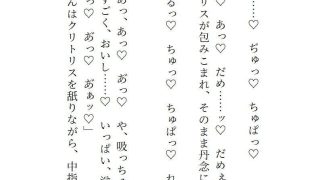 ……♡ ぢゅっ♡ ちゅぱっ♡
♡ あっ♡ だめ……ッ♡ だめぇ
リスが包みこまれ、そのまま丹念に
るっ♡ ちゅっ♡ ちゅぱっ♡ れ
あっ、あっ♡ あ゛っ♡ や、吸っちゃ
すごく、おいし……♡ いっぱい、
っ♡ あ゛っ♡ あ゛ァッ♡」
んはクリトリスを舐りながら、中指